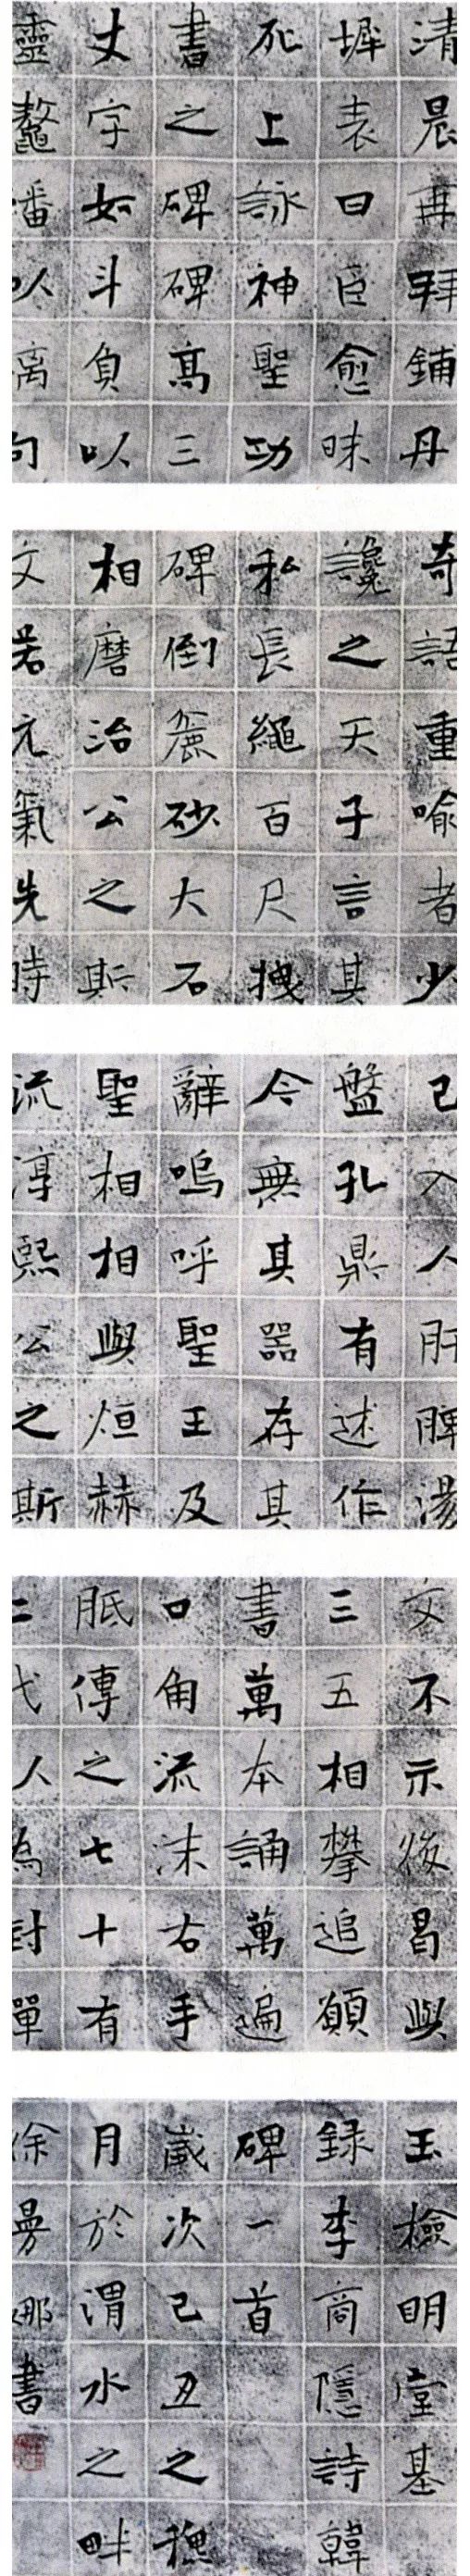 清晨再拜鋪丹
墀表曰臣愈昧
死上詠神聖功
書之碑碑高三
丈字如斗負以
靈鼇蟠以离句
奇語重喻者少
讒之天子言其
私長繩百尺拽
碑倒麄砂大石
相磨治公之斯
文若元氣先時
已入人肝脾湯
盤孔鼎有述作
今無其器存其
辭嗚呼聖王及
聖相相與烜赫
流淳熙公之斯
文不示後曷與
三五相攀追願
書萬本誦萬遍
口角流沫右手
胝傳之七十有
二代以為封禪
玉檢明堂基
録李商隱詩韓
碑一首
歲次己丑之穐
月於渭水之畔
徐曼娜書